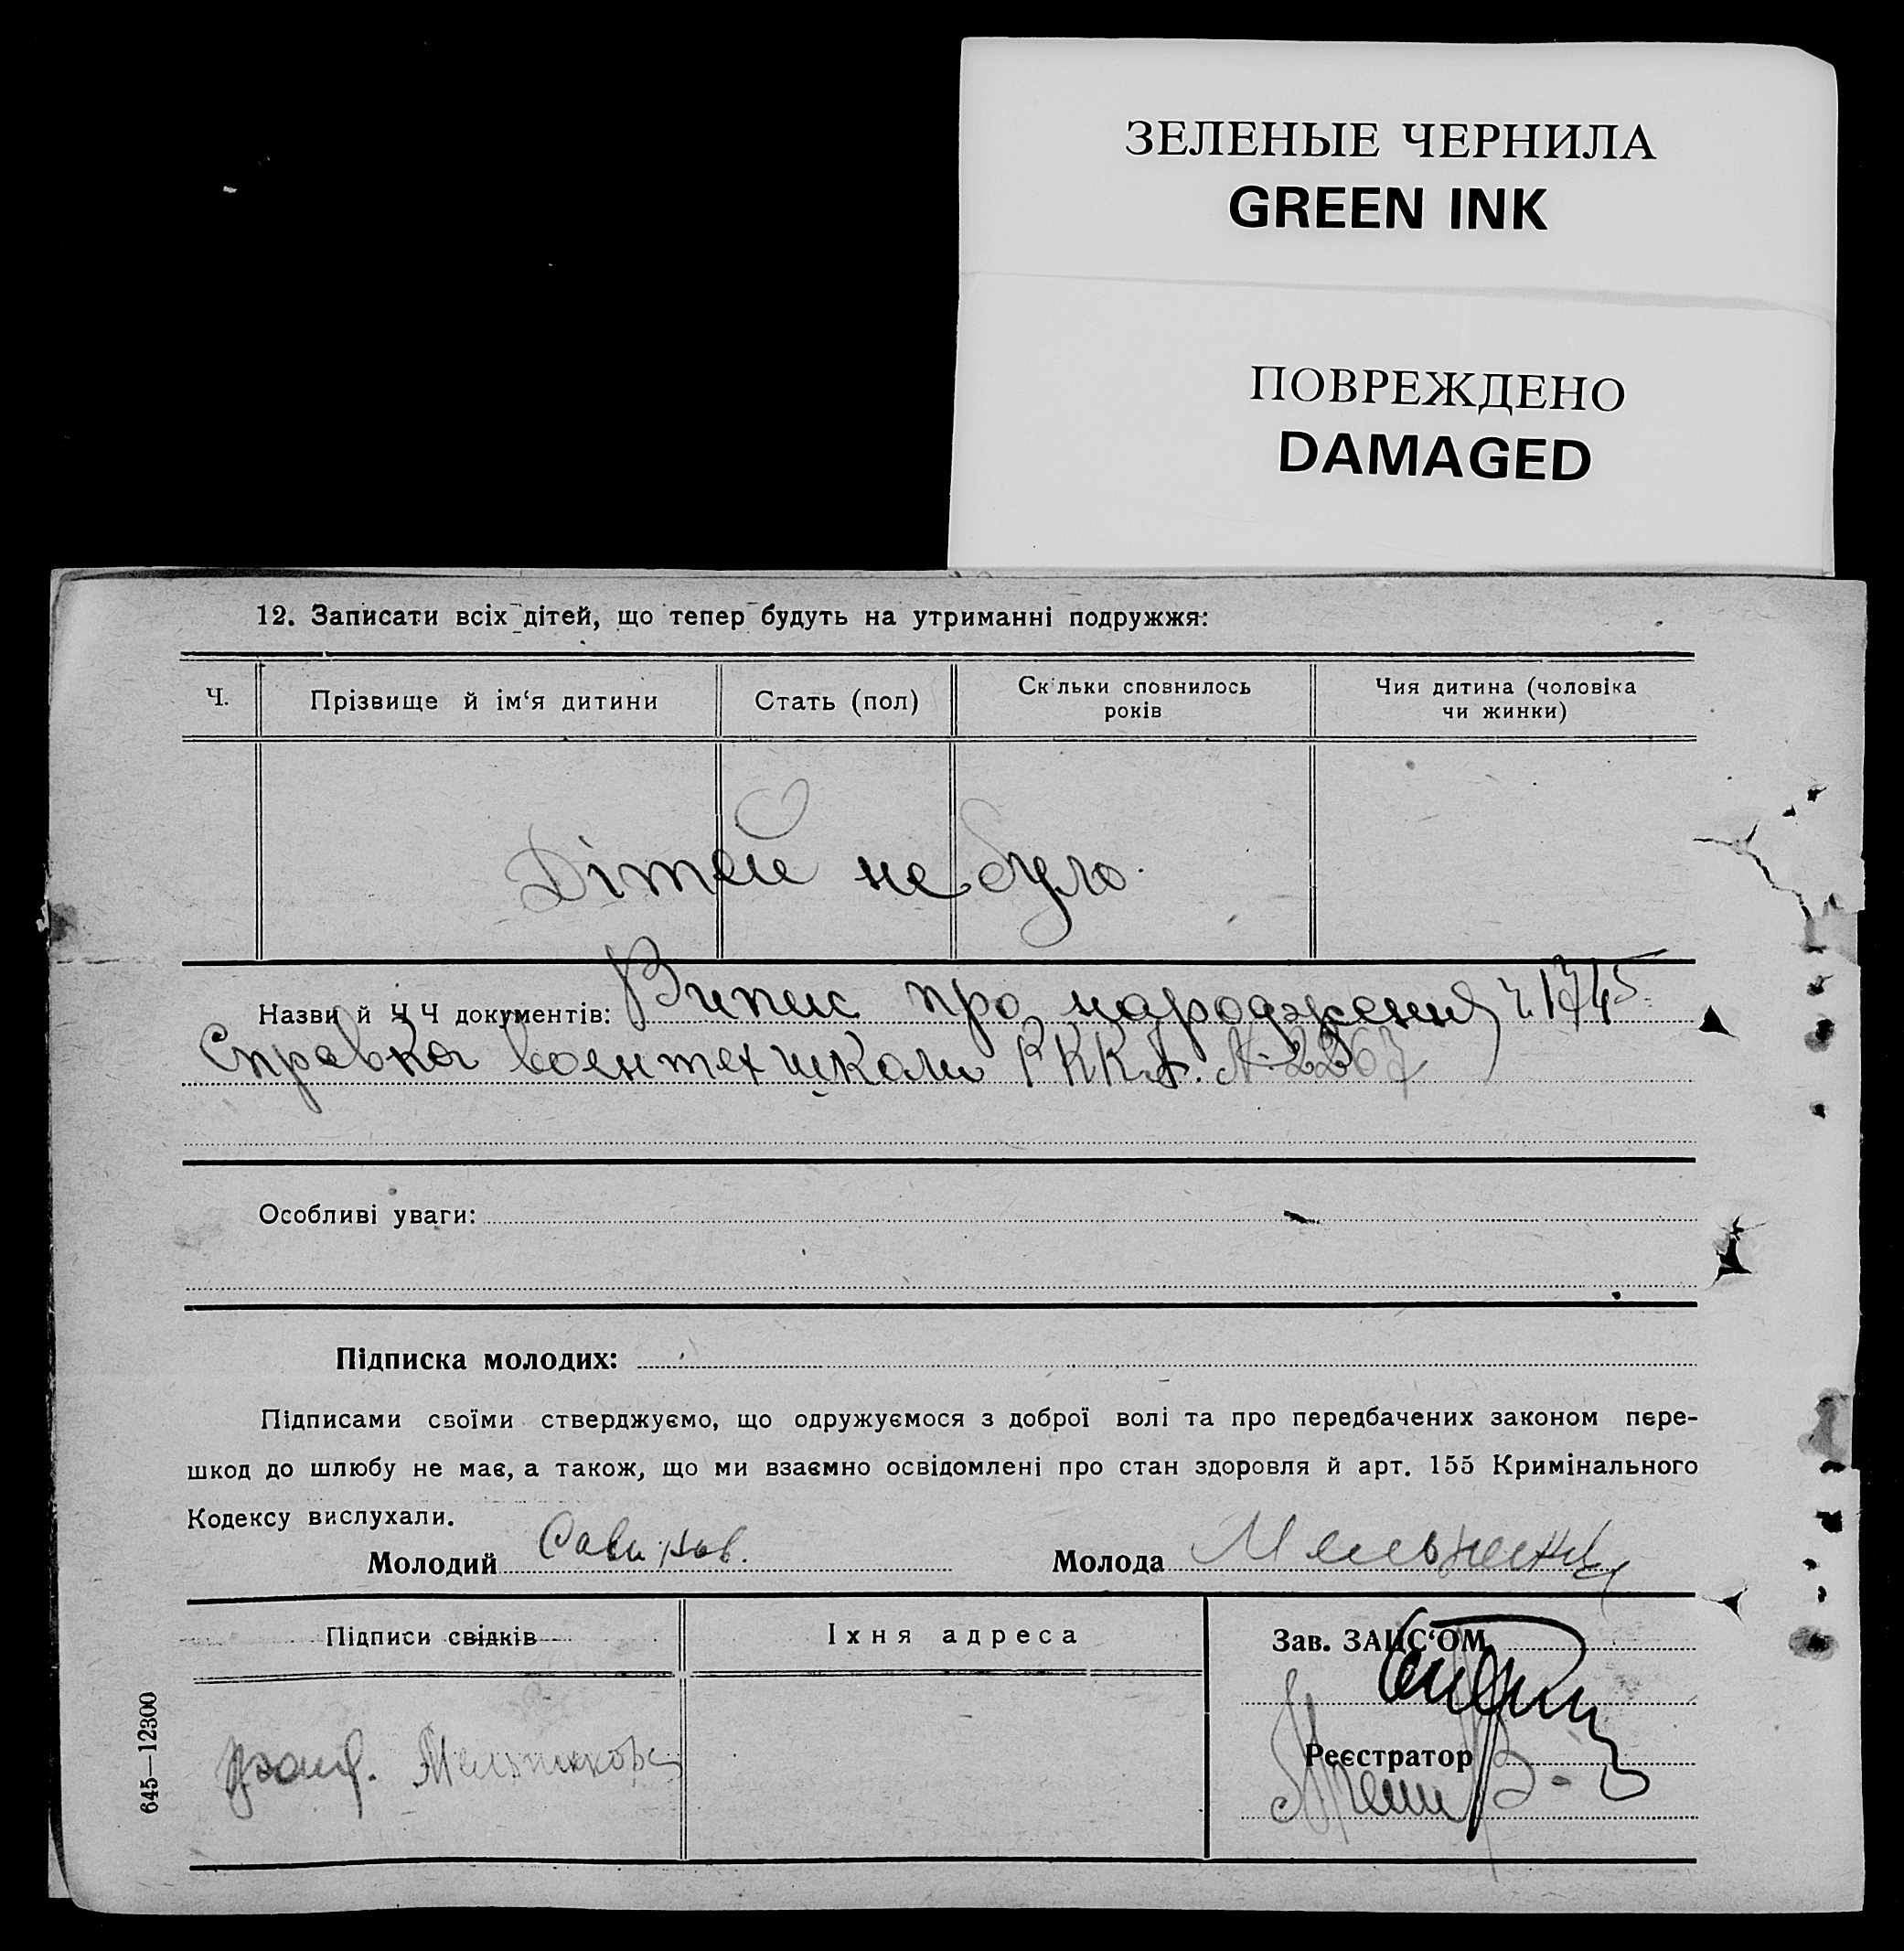 ЗЕЛЕНЫЕ ЧЕРНИЛА
GREEN INK
ПОВРЕЖДЕНО
DAMAGED
12. Записати всіх дітей, що тепер будуть на утриманні подружжя:
Ч.
Прізвище й ім‘я дитини
Стать (пол)
Скільки сповнилось
років
Чия дитина (чоловіка
чи жинки)
Дітей не було.
Назви й Ч Ч документів: Випис про народження ч. 1745
Справка воентехшколи РККА. № 2267
Особливі уваги:
Підписка молодих:
Підписами своїми стверджуємо, що одружуємося з доброї волі та про передбачених законом пере-
шкод до шлюбу не має, а також, що ми взаємно освідомлені про стан здоровля й арт. 155 Кримінального
Кодексу вислухали.
Молодий
Молода
Підписи свідків
Їхня адреса
Зав. ЗАЦС‘ОМ
Реєстратор
645—12300